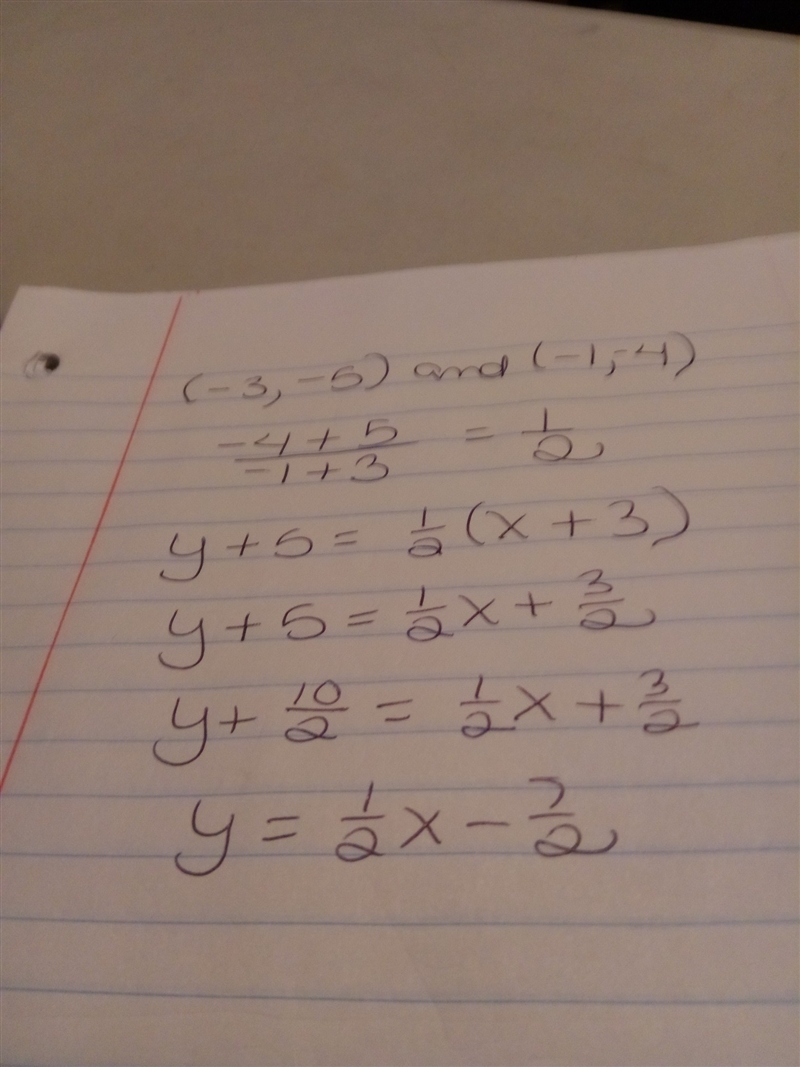 (-3, -5) and (-1, -4)
(-4 + 5)/(-1 + 3) = 1/2
y + 5 = 1/2 (x + 3)
y + 5 = 1/2 x + 3/2
y + 10/2 = 1/2 x + 3/2
y = 1/2 x - 7/2